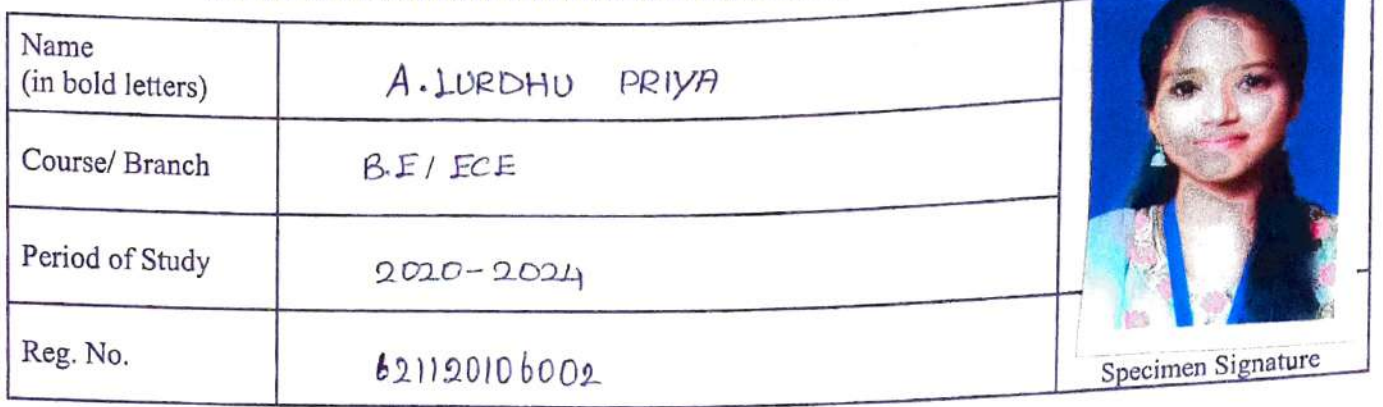 Name
(in bold letters)
A. LURDHU PRIYA
Course/ Branch
B.E / ECE
Period of Study
2020-2024
Reg. No.
621120106002
Specimen Signature